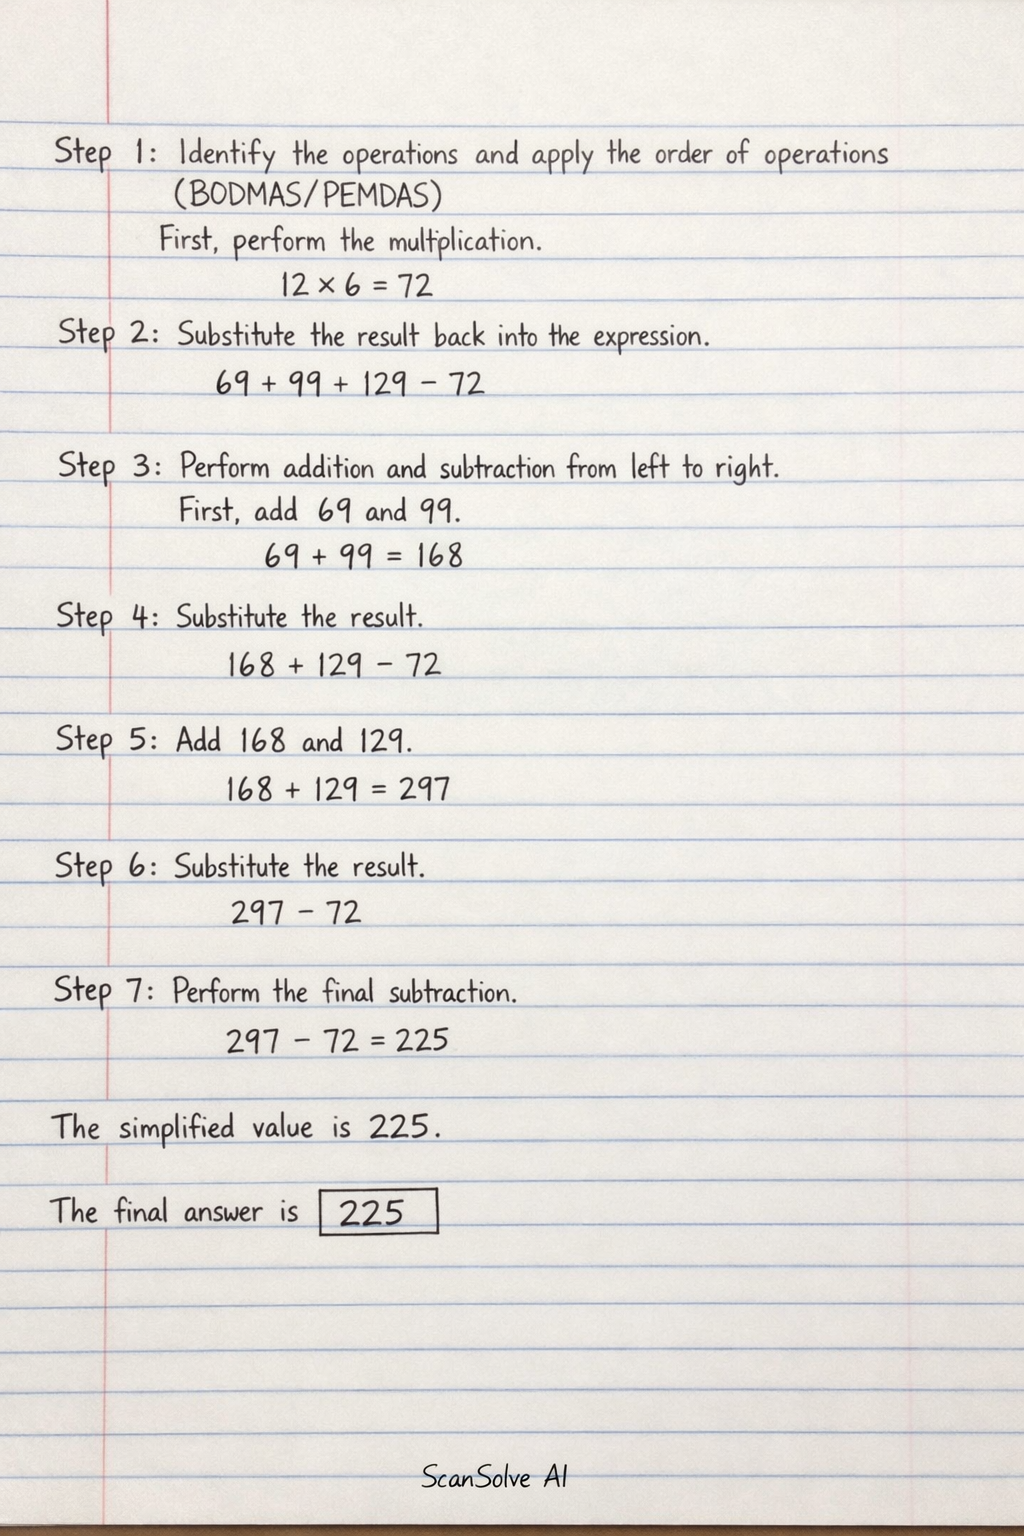 Step 1: Identify the operations and apply the order of operations
(BODMAS/PEMDAS)
First, perform the multiplication.
12 × 6 = 72
Step 2: Substitute the result back into the expression.
69 + 99 + 129 - 72
Step 3: Perform addition and subtraction from left to right.
First, add 69 and 99.
69 + 99 = 168
Step 4: Substitute the result.
168 + 129 - 72
Step 5: Add 168 and 129.
168 + 129 = 297
Step 6: Substitute the result.
297 - 72
Step 7: Perform the final subtraction.
297 - 72 = 225
The simplified value is 225.
The final answer is 225
ScanSolve AI